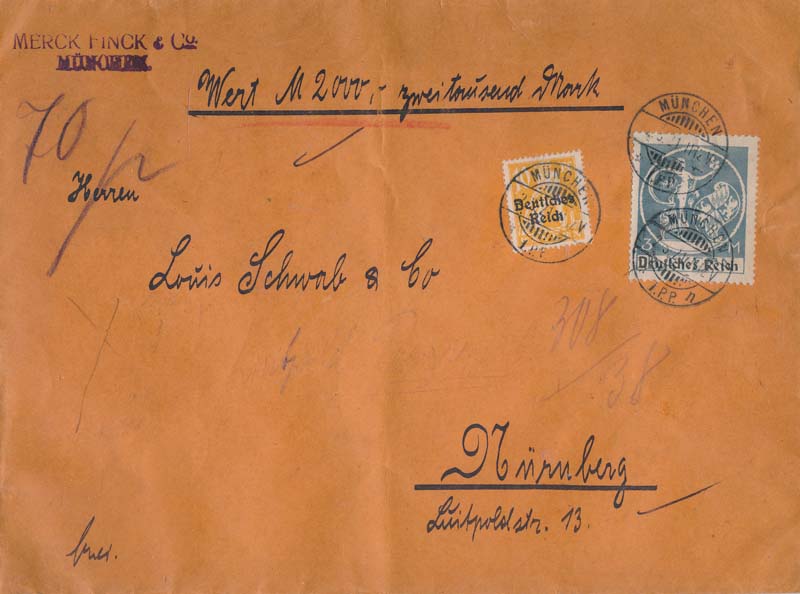 MERCK FINCK & Co.
MÜNCHEN.
Wert M 2000,- zweitausend Mark
70
Herren
MÜNCHEN
Deutsches
Reich
MÜNCHEN
MÜNCHEN
3 M
Deutsches Reich
I.P.P.
Louis Schwab & Co
308
38
Nürnberg
Luitpoldstr. 13.
frei.